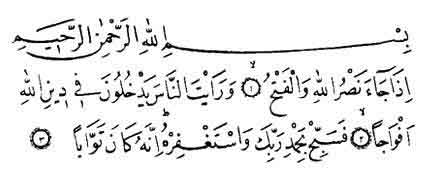 بِسْمِ اللهِ الرَّحْمٰنِ الرَّحِيمِ
اِذَا جَاءَ نَصْرُ اللهِ وَالْفَتْحُ ۙ ﴿١﴾ وَرَاَيْتَ النَّاسَ يَدْخُلُونَ فِي دِينِ اللهِ
اَفْوَاجًا ۙ ﴿٢﴾ فَسَبِّحْ بِحَمْدِ رَبِّكَ وَاسْتَغْفِرْهُ ؕ اِنَّهُ كَانَ تَوَّابًا ﴿٣﴾